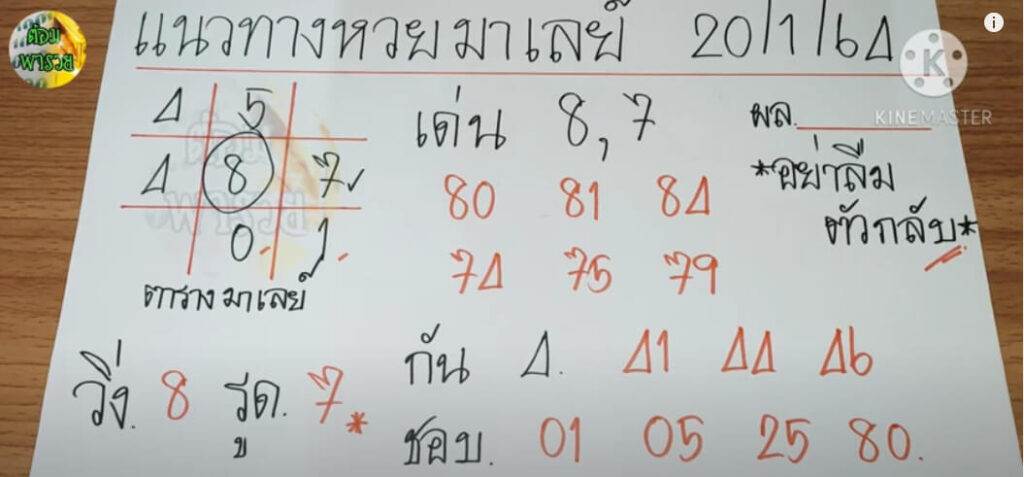 ต๋อม
พารวย
แนวทางหวยมาเลย์ 20/1/64
KINEMASTER
4 5
4 8 7
0 1
ตารางมาเลย์
เด่น 8,7
80 81 84
74 75 79
ผล.
*อย่าลืม
ตัวกลับ*
วิ่ง. 8 รูด. 7*
บ
กัน 4. 41 44 46
ชอบ. 01 05 25 80.